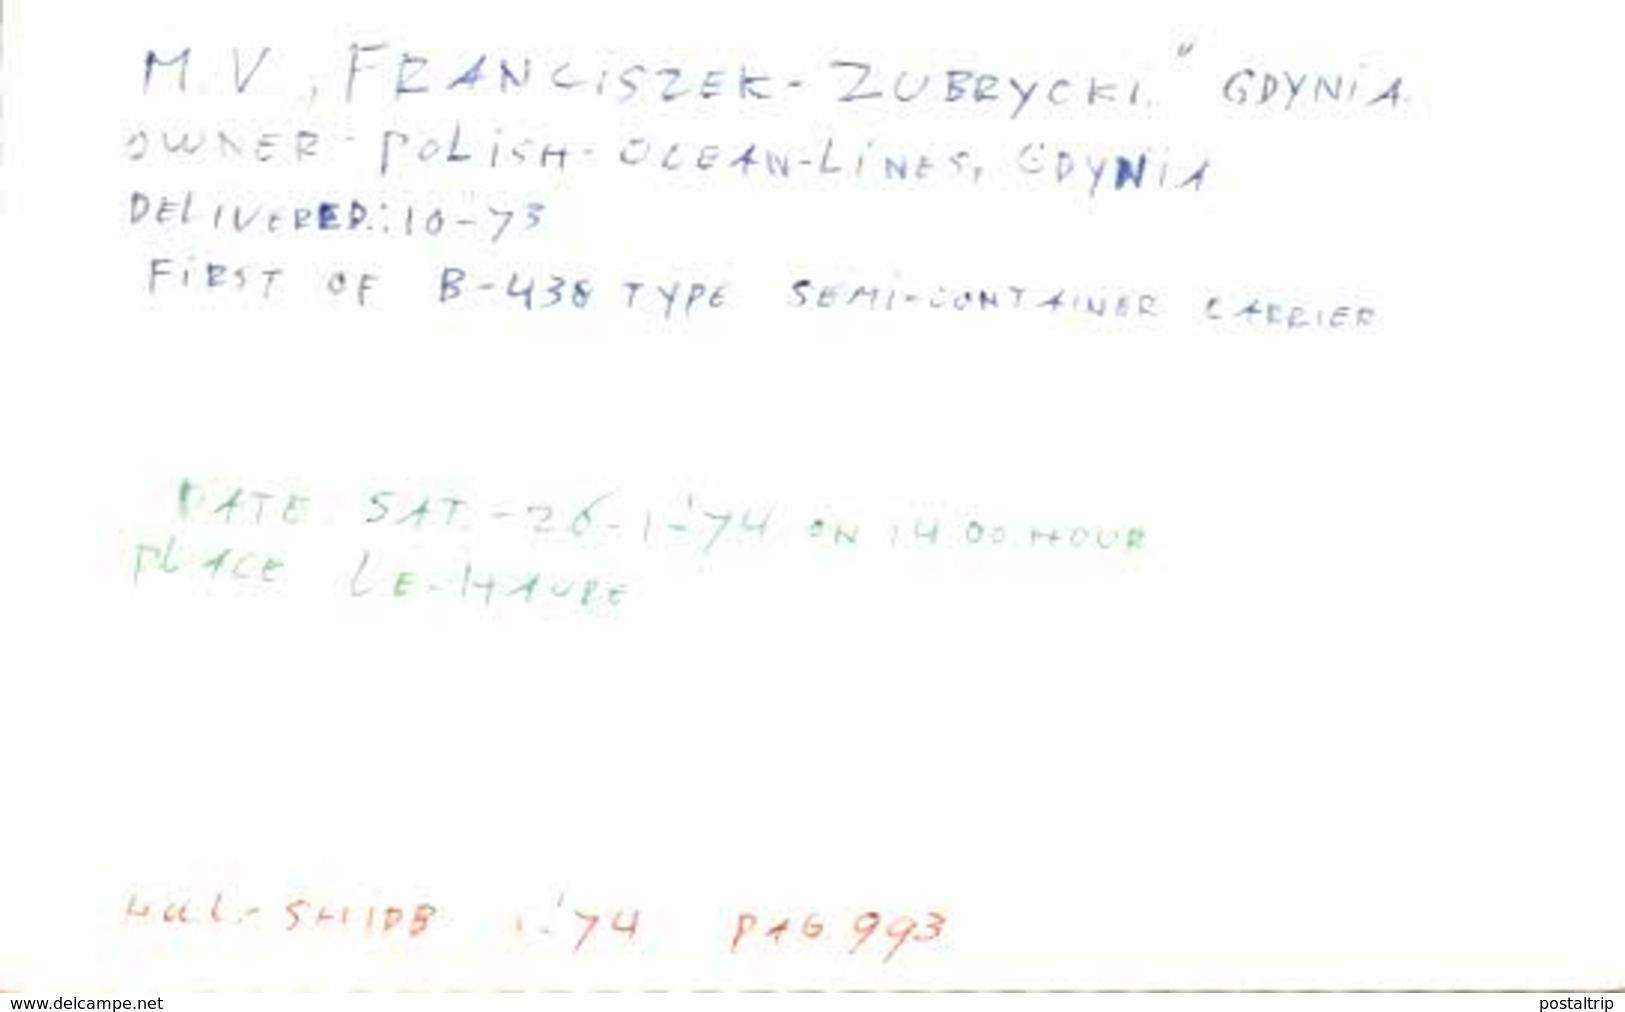 M.V. „FRANCISZEK-ZUBRYCKI." GDYNIA.
OWNER-POLISH-OCEAN-LINES, GDYNIA
DELIVERED: 10-73
FIRST OF B-438 TYPE SEMI-CONTAINER CARRIER
DATE SAT.-26-1-'74 ON 14.00 HOUR
PLACE LE-HAVRE
1-'74 PAG 993
www.delcampe.net
postaltrip